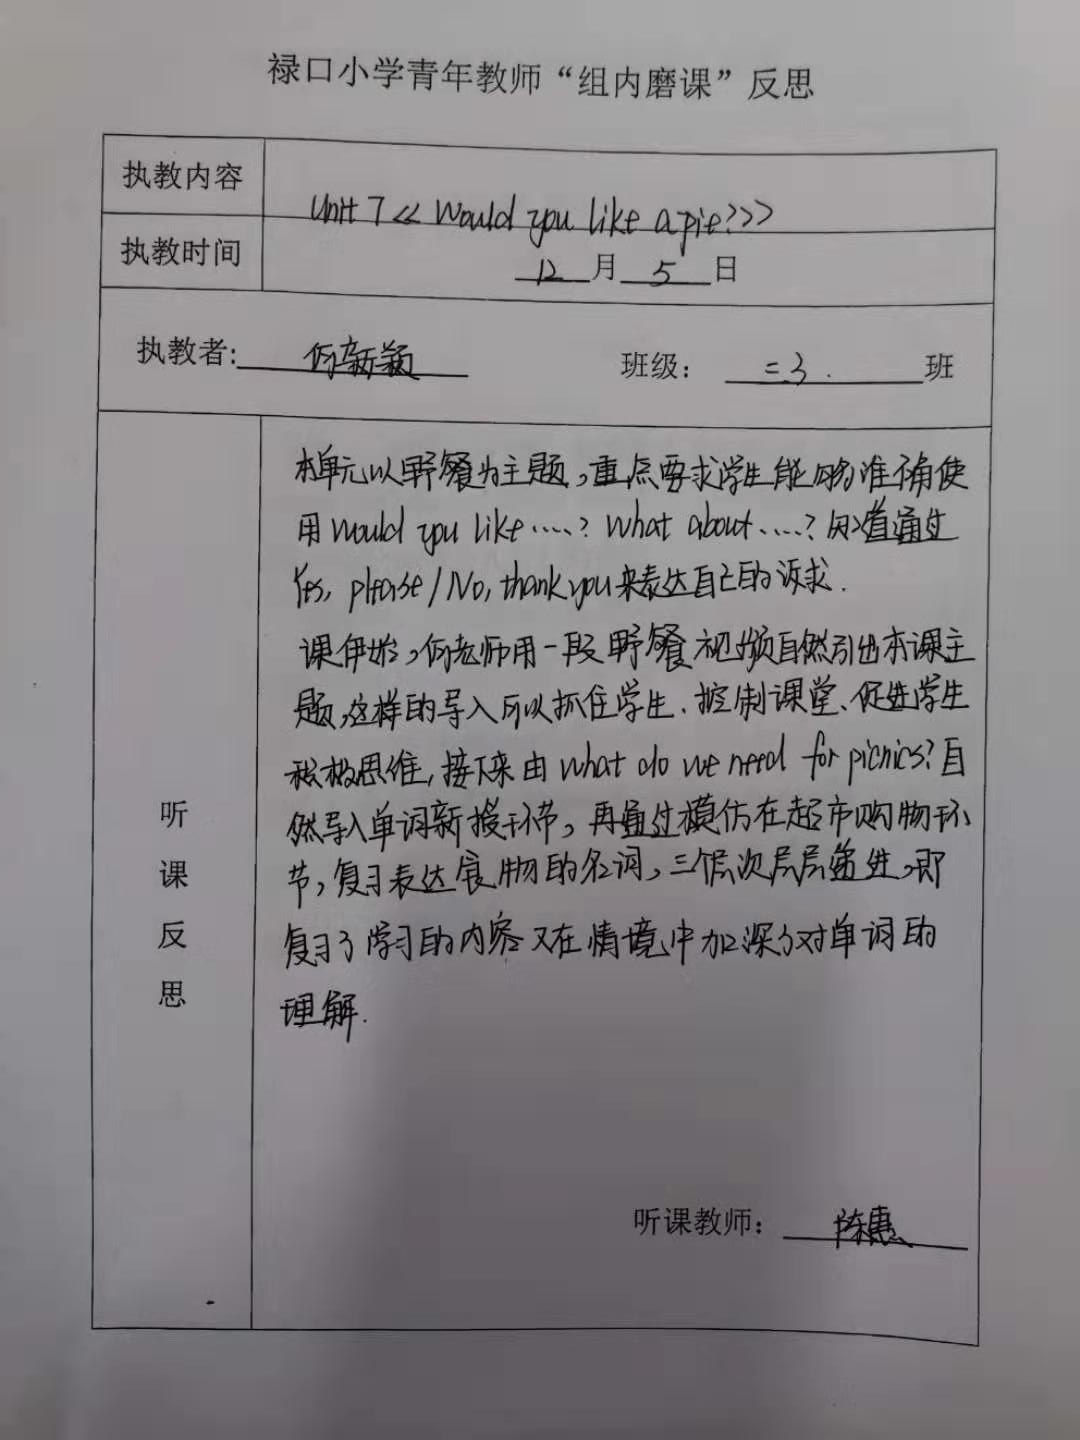 禄口小学青年教师“组内磨课”反思
执教内容
Unit 7 << Would you like a pie?>>
执教时间
12 月 5 日
执教者: 何新颖 班级: 二3. 班
听课反思
本单元以野餐为主题,重点要求学生能够准确使
用would you like ····? What about ····? 知道通过
Yes, please / No, thank you来表达自己的诉求.
课伊始,何老师用一段野餐视频自然引出本课主
题,这样的导入可以抓住学生、控制课堂、促进学生
积极思维,接下来由what do we need for picnics?自
然导入单词新授环节,再通过模仿在超市购物环
节,复习表达食物的名词,三个层次层层递进,即
复习了学习的内容又在情境中加深了对单词的
理解.
听课教师: 陈惠